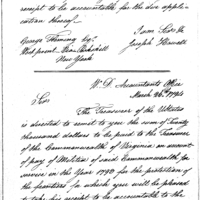 receipt to be accountable for the due appli-
cation thereof.
I am Sir &c
George Fleming Esq.
Joseph Howell
West point Near Peekskill
New York
W. D. Accountants Office
March 26th 179
Sir
The Treasurer of the UStates
is directed to remit to you the sum of twenty
thousand dollars to be paid to the Treasurer
of the Commonwealth of Virginia on amount
of pay of Militia of said Commonwealth for
service in the Year 179 for the protection of
the frontiers for which you will be pleased
to take his receipt to be accountable to the